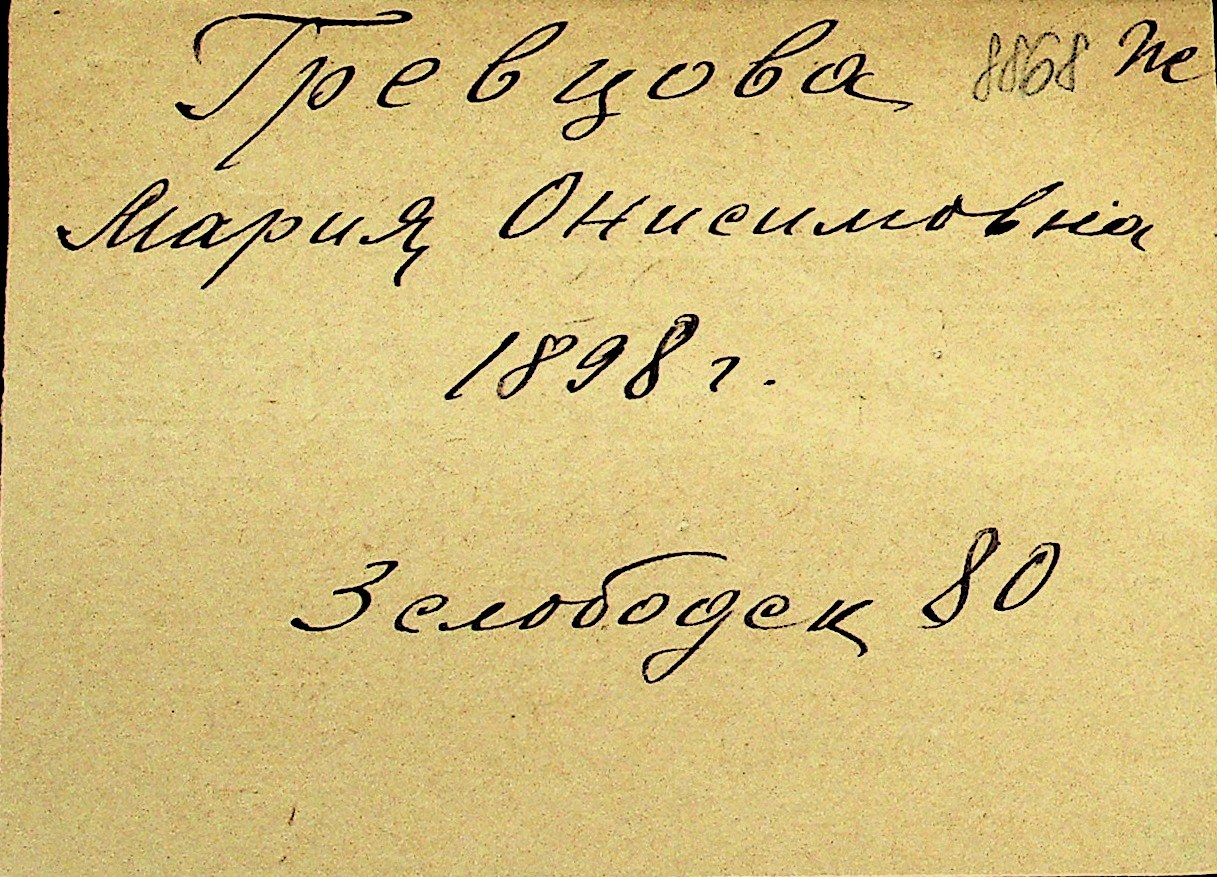 Гревцова 8868
Мария Онисимовна
1898 г.
3 слободск 80